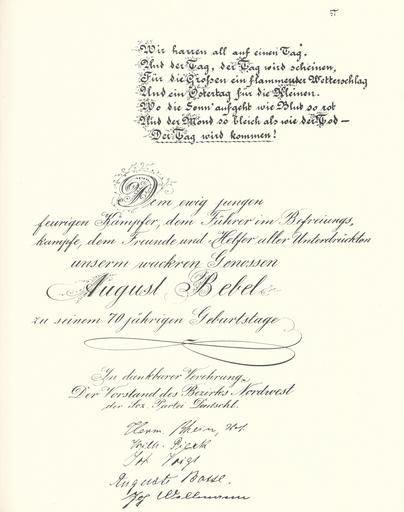 Wir harren all auf einen Tag.
Und der Tag, der Tag wird scheinen,
Für die Großen ein flammender Wetterschlag
Und ein Ostertag für die Kleinen.
Wo die Sonn' aufgeht wie Blut so rot
Und der Mond so bleich als wie der Tod —
Der Tag wird kommen!
Dem ewig jungen
feurigen Kämpfer, dem Führer im Befreiungs-
kampfe, dem Freunde und Helfer aller Unterdrückten
unserm wackren Genossen
August Bebel
zu seinem 70jährigen Geburtstage
In dankbarer Verehrung
Der Vorstand des Bezirks Nordwest
der Soz. Partei Deutschl.
Herm. Rhein,
Wilh. Pieck
Joh. Voigt
Auguste Bosse.
Wellmann